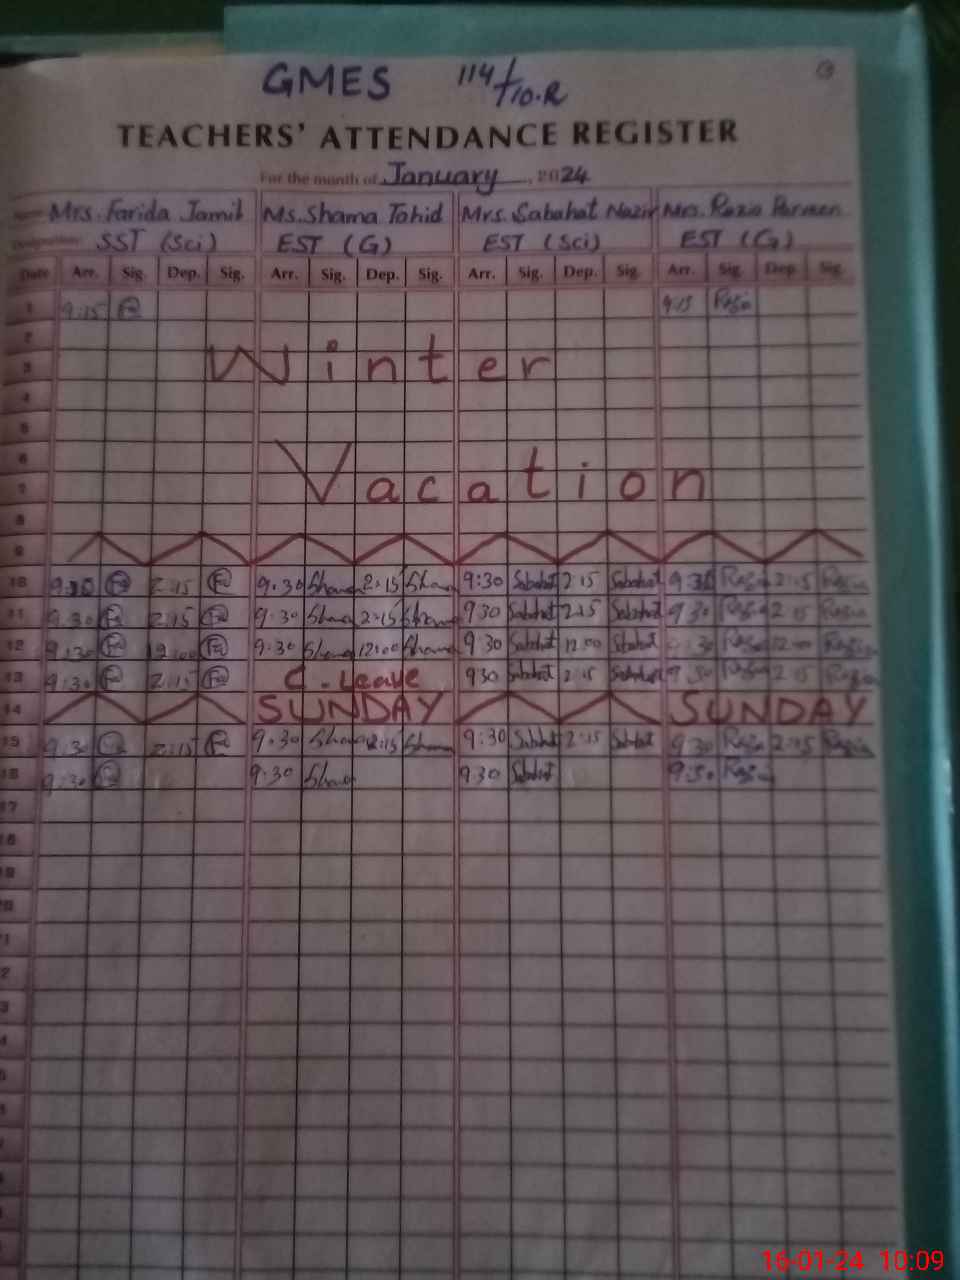 GMES 114/10.R
TEACHERS' ATTENDANCE REGISTER
For the month of January, 2024
Name Mrs. Farida Jamil Ms. Shama Tahid Mrs. Sabahat Nazir Mrs. Razia Parveen
Designation SST (Sci) EST (G) EST (Sci) EST (G)
Date Arr. Sig. Dep. Sig. Arr. Sig. Dep. Sig. Arr. Sig. Dep. Sig. Arr. Sig. Dep. Sig.
1 9:15 9:15 Razia
2
3 Winter
4
5
6
7 Vacation
8
9
10 9:30 2:15 9.30 Shama 2:15 Shama 9:30 Sabahat 2:15 Sabahat 9:30 Razia 2:15 Razia
11 9:30 2:15 9:30 Shama 2:15 Shama 9:30 Sabahat 2:15 Sabahat 9:30 Razia 2:15 Razia
12 9:30 12:00 9:30 Shama 12:00 Shama 9:30 Sabahat 12:00 Sabahat 9:30 Razia 12:00 Razia
13 9:30 2:15 C. Leave 9:30 Sabahat 2:15 Sabahat 9:30 Razia 2:15 Razia
14 SUNDAY SUNDAY
15 9:30 2:15 9.30 Shama 2:15 Shama 9:30 Sabahat 2:15 Sabahat 9:30 Razia 2:15 Razia
16 9:30 9:30 Shama 9:30 Sabahat 9:30 Razia
17
18
19
20
21
22
23
16-01-24 10:09